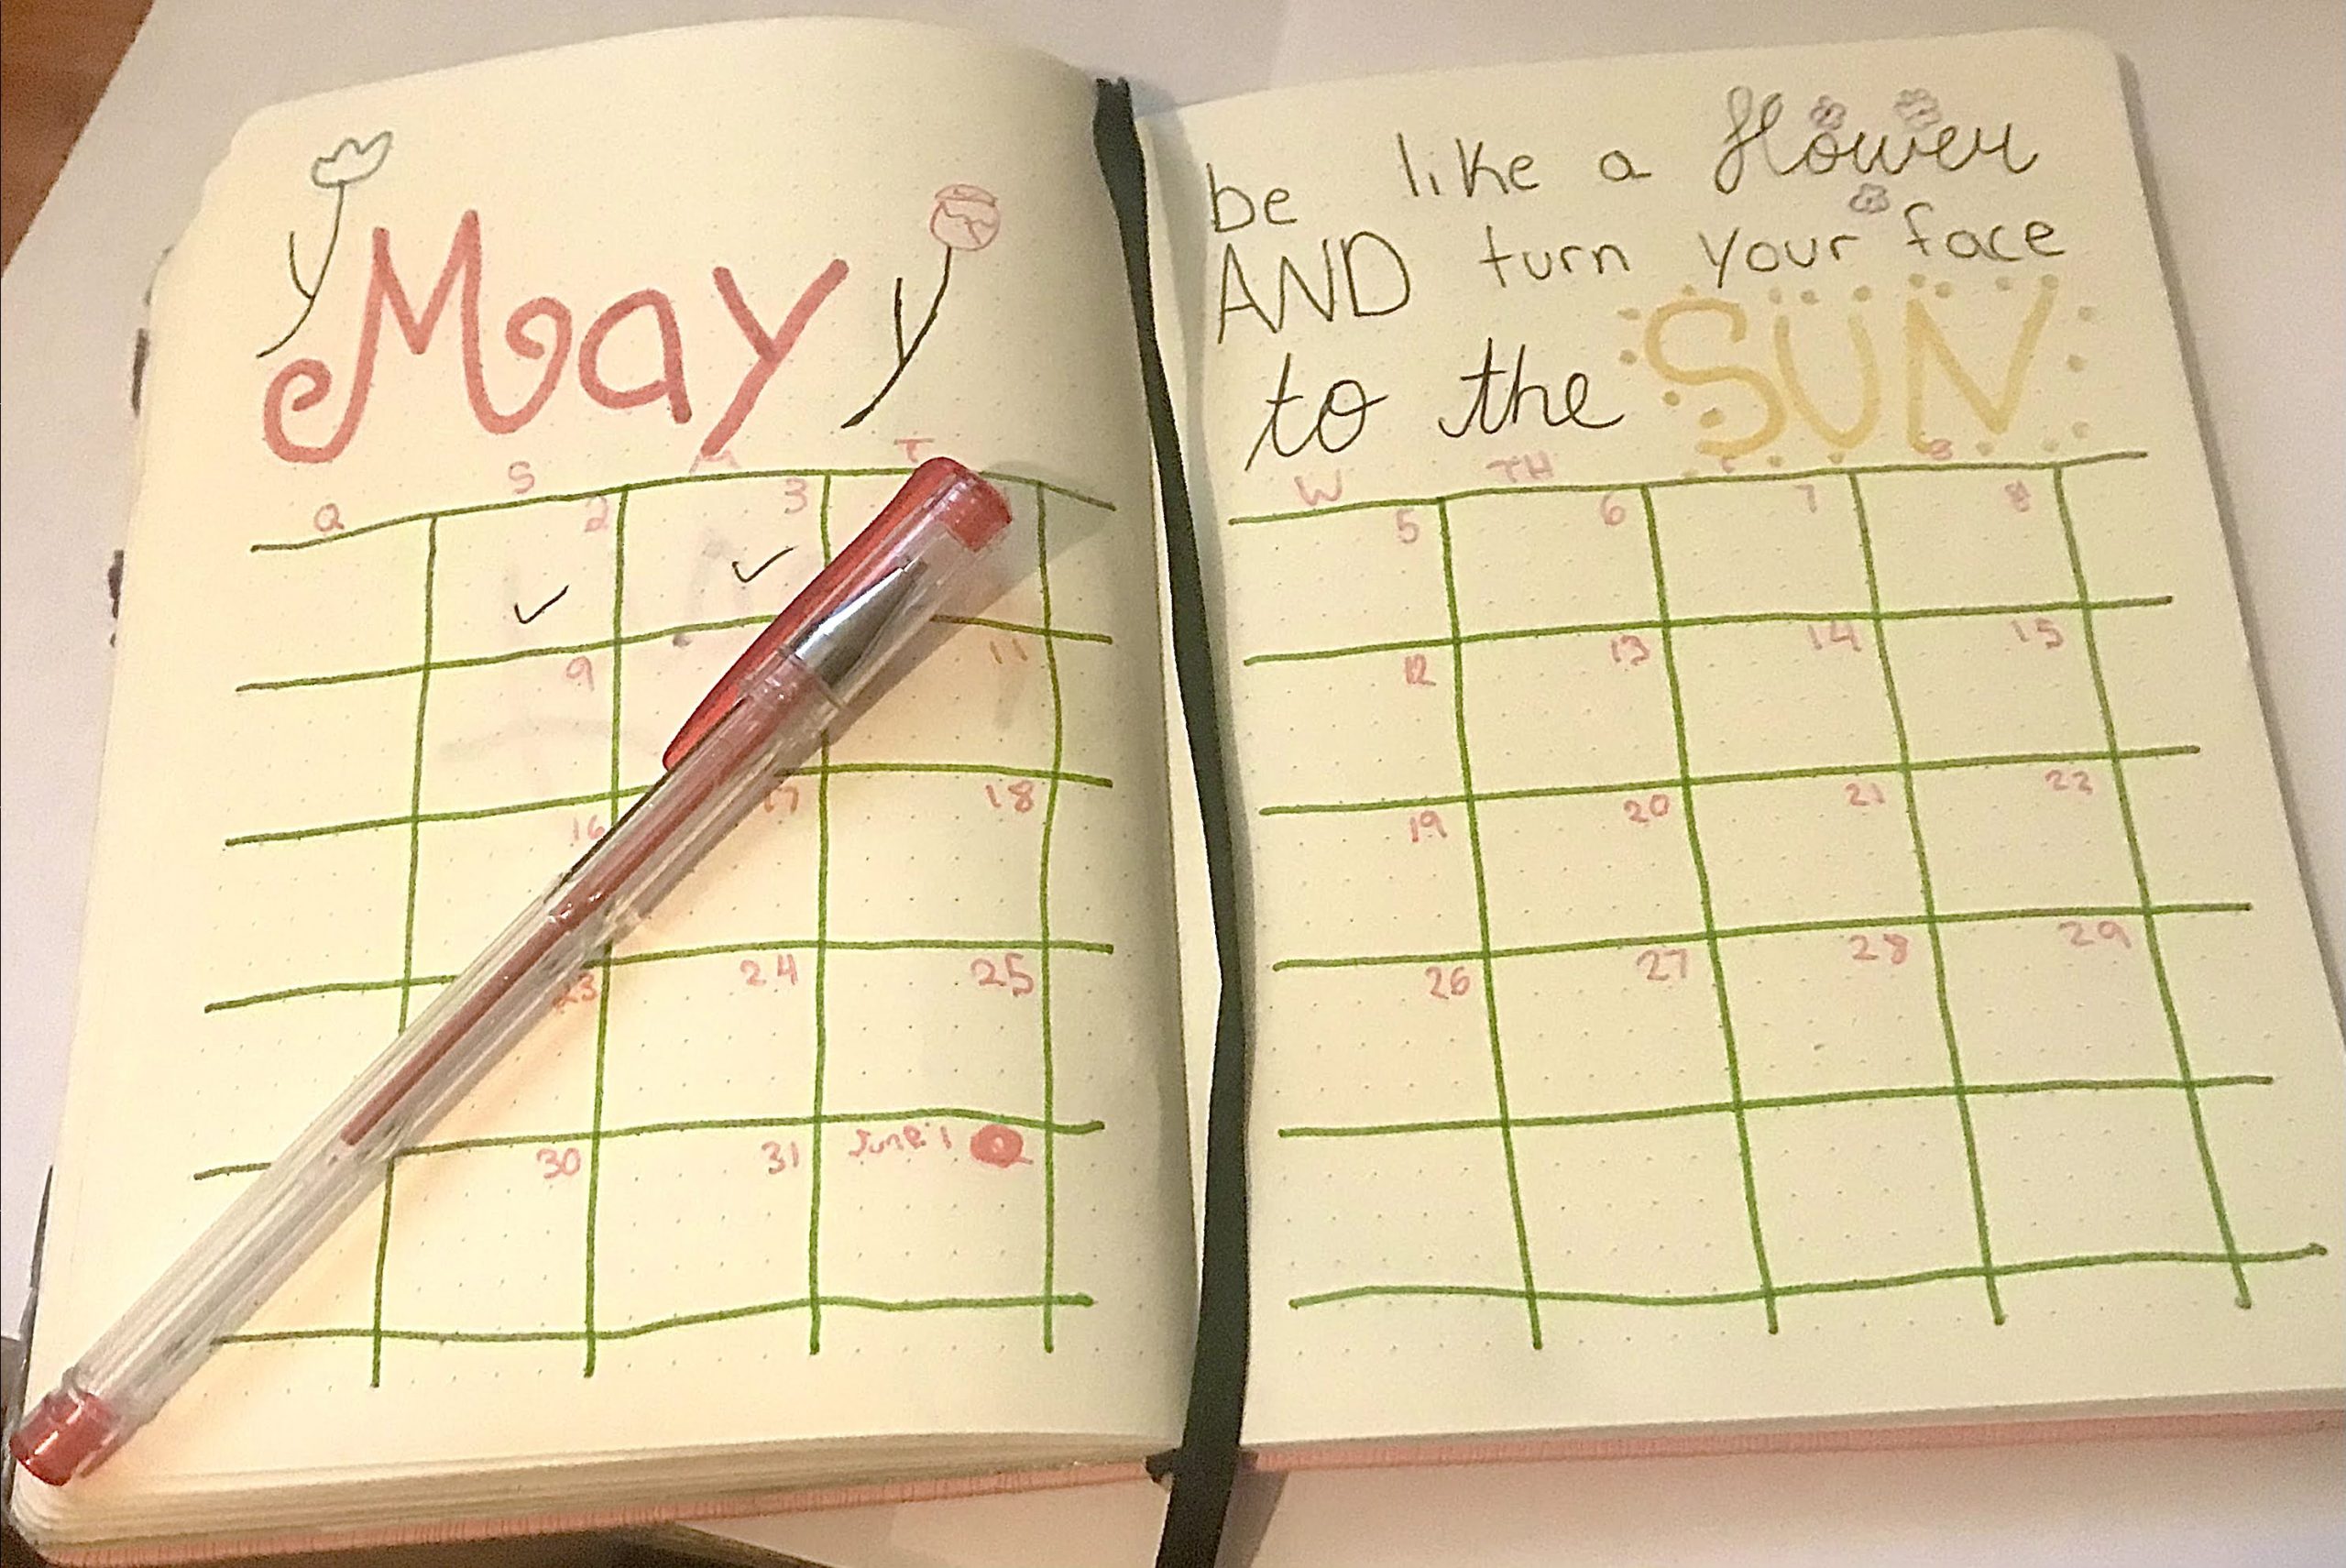 May
Q S M T
2 3
9 11
16 17 18
23 24 25
30 31 June 1
be like a flower
AND turn your face
to the SUN
W TH F S
5 6 7 8
12 13 14 15
19 20 21 22
26 27 28 29